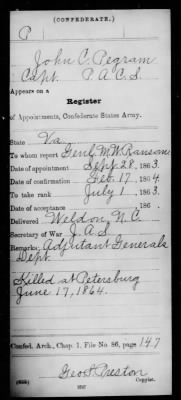 (CONFEDERATE.)
P
John C. Pegram
Capt. P.A.C.S.
Appears on a
Register
of Appointments, Confederate States Army.
State Va.
To whom report Genl. M. W. Ransom
Date of appointment Sept 28, 1863.
Date of confirmation Feb. 17, 1864.
To take rank July 1, 1863.
Date of acceptance , 186 .
Delivered Weldon, N.C.
Secretary of War J.A.S.
Remarks: Adjutant Generals
Dept.
Killed at Petersburg
June 17, 1864.
Confed. Arch., Chap. 1, File No. 86, page 147
Geo H Preston
Copyist.